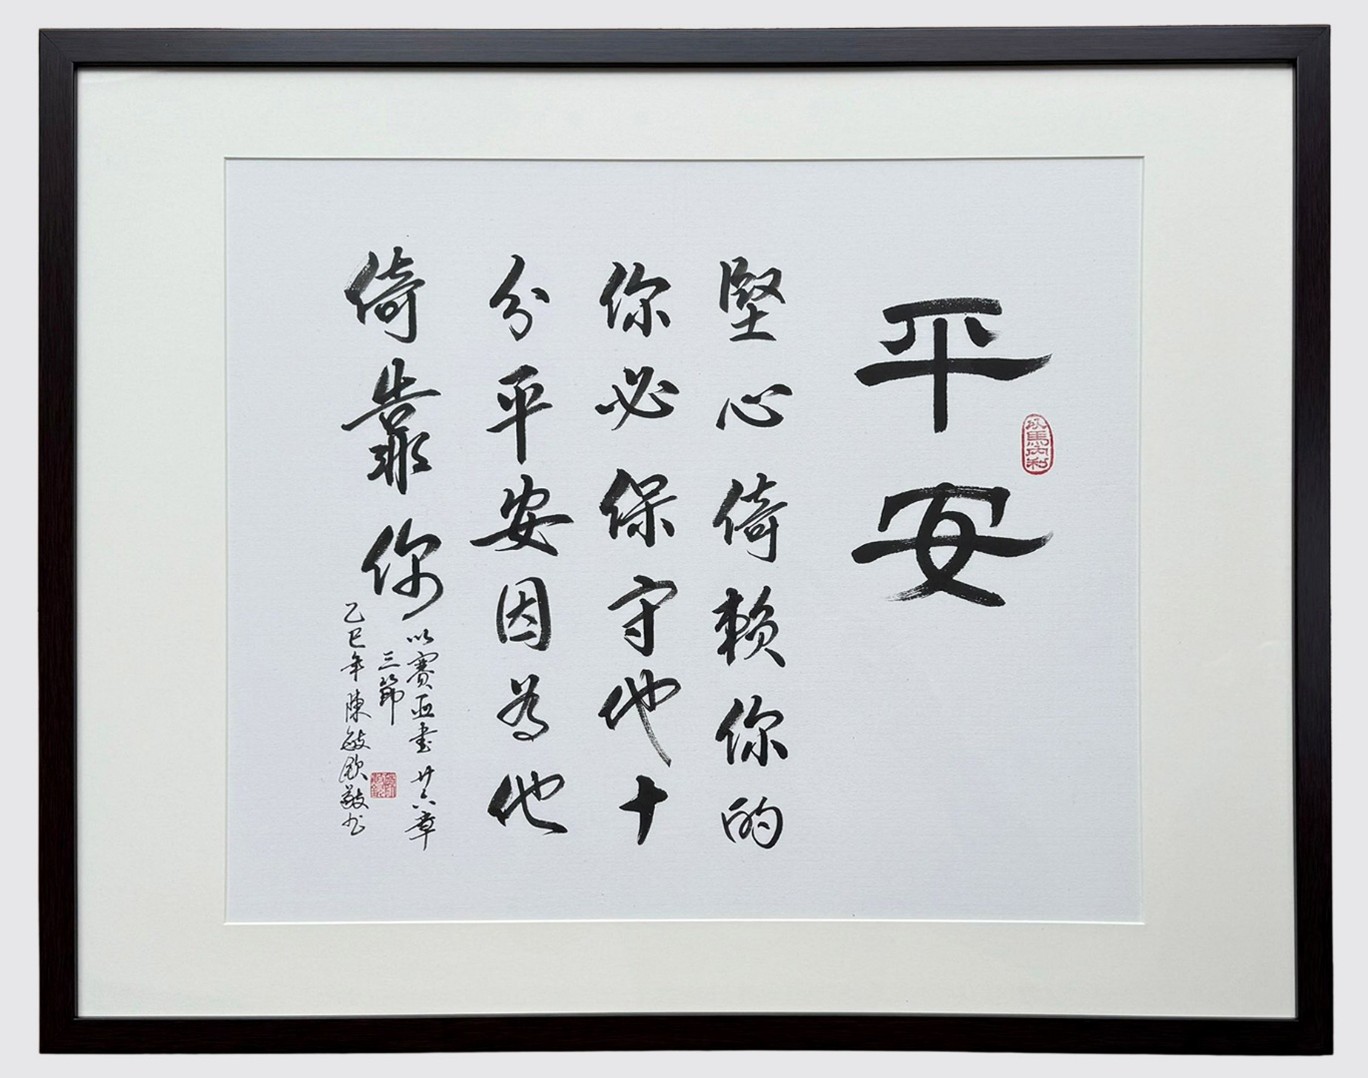 平安
堅心倚賴你的
你必保守他十
分平安因為他
倚靠你
以賽亞書廿六章
三節
乙巳年陳敏欽敬書
以馬內利